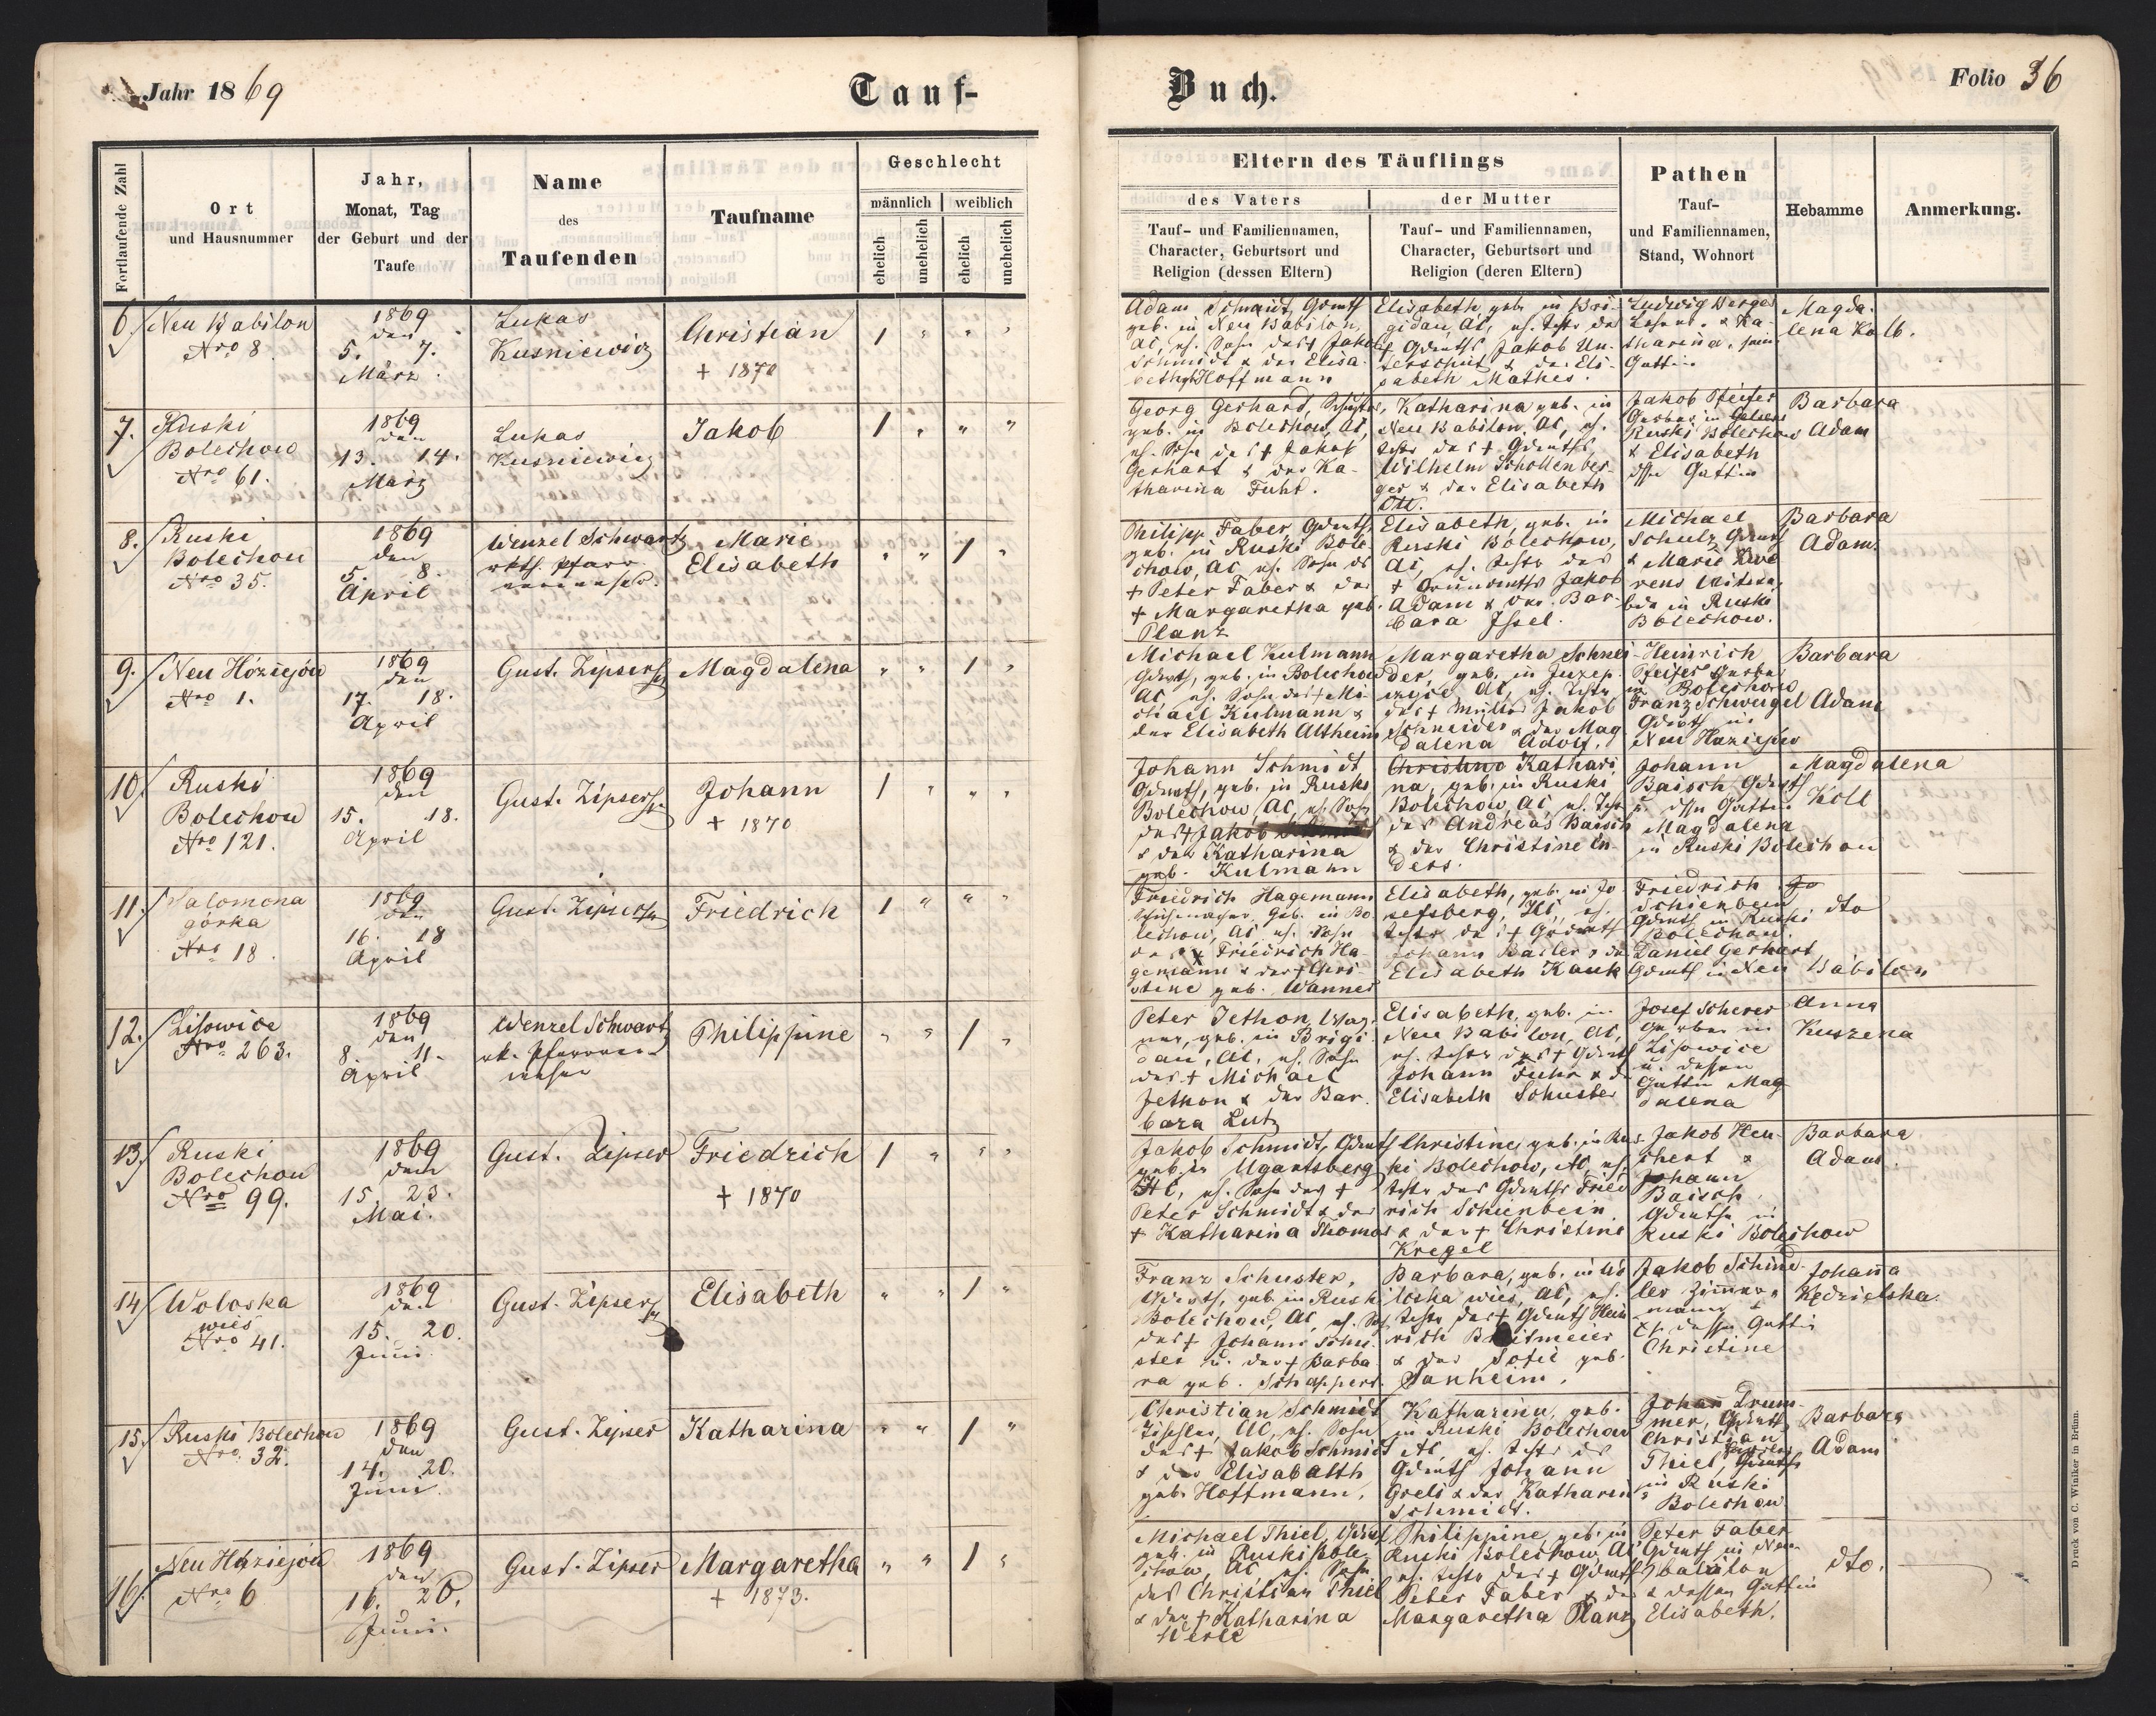 Jahr 1869
Tauf-
Buch.
Folio 36
Fortlaufende Zahl
Ort
und Hausnummer
Jahr,
Monat, Tag
der Geburt und der
Taufe
Name
des
Taufenden
Taufname
Geschlecht
männlich
weiblich
ehelich
unehelich
ehelich
unehelich
Eltern des Täuflings
des Vaters
Tauf- und Familiennamen,
Character, Geburtsort und
Religion (dessen Eltern)
der Mutter
Tauf- und Familiennamen,
Character, Geburtsort und
Religion (deren Eltern)
Pathen
Tauf-
und Familiennamen,
Stand, Wohnort
Hebamme
Anmerkung.
6.
Neu Babilon
Nro 8
1869
den
5. 7.
März
Lukas
Kusniewicz
Christian
+ 1870
1 " " "
Adam Schmidt, Grundw
geb. in Neu Babilon,
AC, eh. Sohn des + Jakob
Schmidt & der Elisa-
beth geb Hoffmann
Elisabeth, geb. in Bri-
gidau, AC, eh. Tochter des
+ Grdwths Jakob Un-
terschüt & der Eli-
sabeth Mathes.
Ludwig
& Ka-
tharina, sein
Gattin
Magda-
lena Kolb.
7.
Ruski
Bolechow
Nro 61.
1869
den
13. 14.
März
Lukas
Kusniewicz
Jakob
1 " " "
Georg Gerhard, Schuster,
geb. in Bolechow, AC,
eh. Sohn des + Jakob
Gerhart & der Ka-
tharina Fuhr.
Katharina geb. in
Neu Babilon, AC, eh.
Tochter des + Grdwths
Wilhelm Schollenber-
ger & der Elisabeth
Ott.
Jakob Pfeifer
Gerber in
Ruski Bolechow
& Elisabeth
dssn Gattin
Barbara
Adam
8.
Ruski
Bolechow
Nro 35.
1869
den
5. 8.
April
Wenzel Schwartz
rkth. Pfarr-
verweser.
Marie
Elisabeth
" " 1 "
Philipp Faber, Grdwth,
geb. in Ruski Bole-
chow, AC eh. Sohn ds
+ Peter Faber & der
+ Margaretha geb.
Planz
Elisabeth, geb. in
Ruski Bolechow,
AC, eh. Tochter des
+ Grundwths Jakob
Adam & der Bar-
bara Issel.
Michael
Schulz Grdwth
& Marie
in Ruski
Bolechow.
Barbara
Adam.
9.
Neu Hóziejów
Nro 1.
1869
den
17. 18.
April
Gust. Zipser
Magdalena
" " 1 "
Michael Kulmann
Grdwth, geb. in Bolechow
AC eh. Sohn des + Mi-
chael Kulmann &
der Elisabeth Altheim
Margaretha Schnei-
der, geb. in Juzep-
czyce, AC, eh. Tochter
des + Müller Jakob
Schneider & der Mag-
dalena Adolf.
Heinrich
Pfeifer Gerber
in Bolechow
Franz Schweigel
Grdwth in
Neu Hoziejów
Barbara
Adam
10.
Ruski
Bolechow
Nro 121.
1869
den
15. 18.
April
Gust. Zipser
Johann
+ 1870
1 " " "
Johann Schmidt
Grdwth, geb. in Ruski
Bolechow, AC, eh. Sohn
des + Jakob
& der Katharina
geb. Kulmann
Christine Kathari-
na, geb. in Ruski
Bolechow, AC eh. Tochter
des Andreas Baisch
& der Christine En-
ders.
Johann
Baisch Grdwth
u. dssn Gattin
Magdalena
in Ruski Bolechow
Magdalena
Koll
11.
Salomona
górka
Nro 18.
1869
den
16. 18
April
Gust. Zipser
Friedrich
1 " " "
Friedrich Hagemann
Schuhmacher, geb. in Bo-
lechow, AC eh. Sohn
des + Friedrich Ha-
gemann & der + Chri-
stine geb. Wanner
Elisabeth, geb. in Jo-
sefsberg, HC, eh.
Tochter des + Grdwth
Johann Bailer & der
Elisabeth Kauk
Friedrich
Schienbein
Grdwth in Ruski
Bolechow.
Daniel Gerhart
Grdwth in Neu Babilon
dto
12.
Lisowice
Nro 263.
1869
den
8. 11.
April
Wenzel Schwartz
rk. Pfarrver-
weser
Philippine
" " 1 "
Peter Jethon, Wag-
ner, geb. in Brigi-
dau, AC, eh. Sohn
des + Michael
Jethon & der Bar-
bara Lutz
Elisabeth, geb. in
Neu Babilon, AC,
eh. Tochter des + Grdwth
Johann Fuhr & der
Elisabeth Schuster
Josef Scherer
Gerber in
Lisowice
u. dessen
Gattin Mag-
dalena
Anna
Kuszena
13.
Ruski
Bolechow
Nro 99.
1869
den
15. 23.
Mai.
Gust. Zipser
Friedrich
+ 1870
1 " " "
Jakob Schmidt, Grdwth
geb. in Ugartsberg
HC, eh. Sohn des +
Peter Schmidt & der
+ Katharina Thomas
Christine, geb. in Rus-
ki Bolechow, AC, eh.
Tochter des Grdwths Fried-
rich Schienbein
& der + Christine
Kregel
Jakob Heu-
chert &
Johann
Baisch,
Grdwthe in
Ruski Bolechow
Barbara
Adam.
14.
Woloska
wies
Nro 41.
1869
den
15. 20.
Juni
Gust. Zipser
Elisabeth
" " 1 "
Franz Schuster,
Grdwth, geb. in Ruski
Bolechow, AC, eh. Sohn
des + Johann Schu-
ster u. der + Barba-
ra geb. Schappert.
Barbara, geb. in Wo-
loska wies, AC, eh.
Tochter des + Grdwth Hein-
rich Breitmeier
& der Sofie geb.
Sanheim.
Jakob Schind-
ler Zimmer-
mann &
dessen Gattin
Christine
Johanna
Kedzielska.
15.
Ruski Bolechow
Nro. 32.
1869
den
14. 20.
Juni.
Gust. Zipser
Katharina
" " 1 "
Christian Schmidt
Tischler, AC, eh. Sohn
des + Jakob Schmidt
& der Elisabath
geb. Hoffmann.
Katharina, geb.
in Ruski Bolechow
AC, eh. Tochter des
Grdwth Johann
Greis & der Katharina
Schmidt.
Johan Drum-
mer, Grdwth
Christian
Thiel,
in Ruski
Bolechow
Barbara
Adam
16.
Neu Hóziejów
Nro 6
1869
den
16. 20.
Juni.
Gust. Zipser
Margaretha
+ 1873.
" " 1 "
Michael Thiel, Grdwth
geb. in Ruski Bole-
chow, AC, eh. Sohn
des Christian Thiel
& der + Katharina
Werle
Philippine, geb. in
Ruski Bolechow, AC
eh. Tochter des + Grdwth
Peter Faber & der
Margaretha Planz
Peter Faber
Grdwth in Neu-
babilon
& dessen Gattin
Elisabeth.
dto.
Druck von C. Winiker in Brünn.